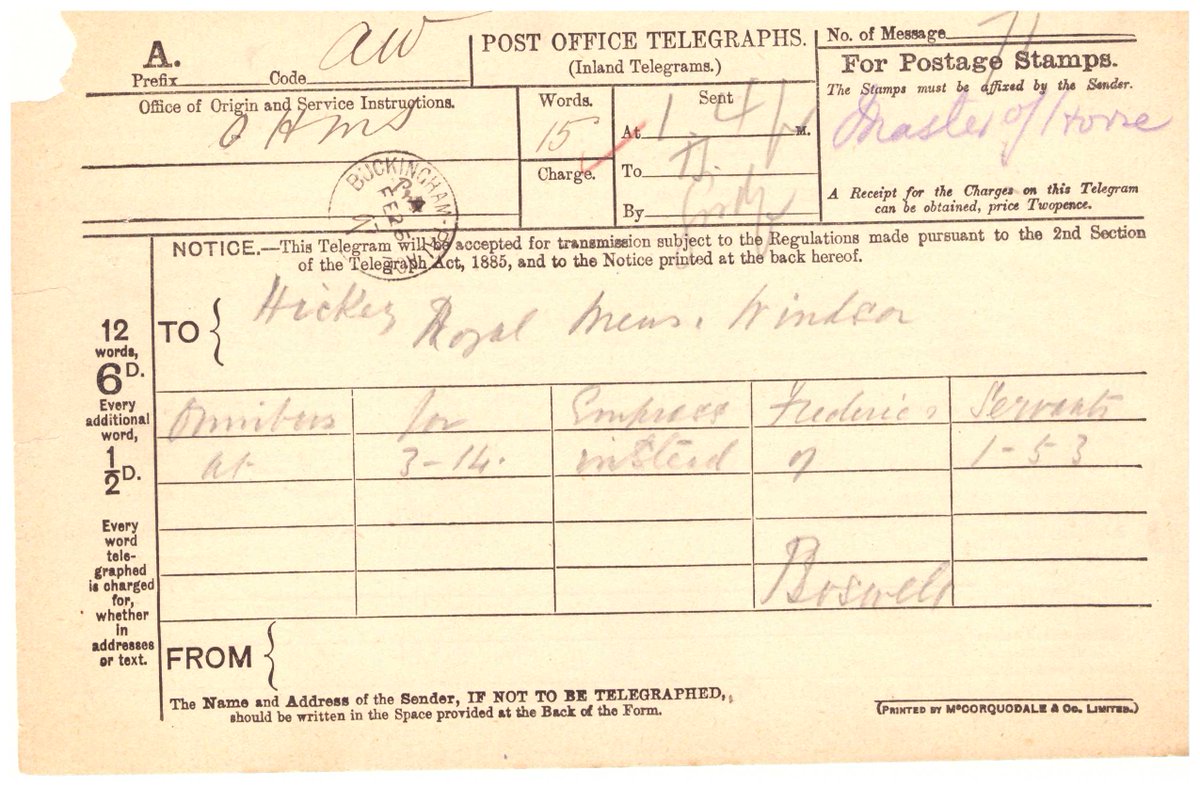 A.
Prefix Code aw
POST OFFICE TELEGRAPHS.
(Inland Telegrams.)
No. of Message 71
For Postage Stamps.
The Stamps must be affixed by the Sender.
Master of Horse
A Receipt for the Charges on this Telegram
can be obtained, price Twopence.
Office of Origin and Service Instructions.
OHMS
Words.
15
Charge.
Sent
At 1.4 M.
To
By
BUCKINGHAM
FE 26
NOTICE.—This Telegram will be accepted for transmission subject to the Regulations made pursuant to the 2nd Section
of the Telegraph Act, 1885, and to the Notice printed at the back hereof.
TO { Hickey Royal Mews. Windsor
12
words,
6D.
Every
additional
word,
½D.
Every
word
tele-
graphed
is charged
for,
whether
in
addresses
or text.
Omnibus for Empress Frederic's Servants
at 3-14. instead of 1-53
Boswell
FROM {
The Name and Address of the Sender, IF NOT TO BE TELEGRAPHED,
should be written in the Space provided at the Back of the Form.
(PRINTED BY McCORQUODALE & Co. LIMITED.)